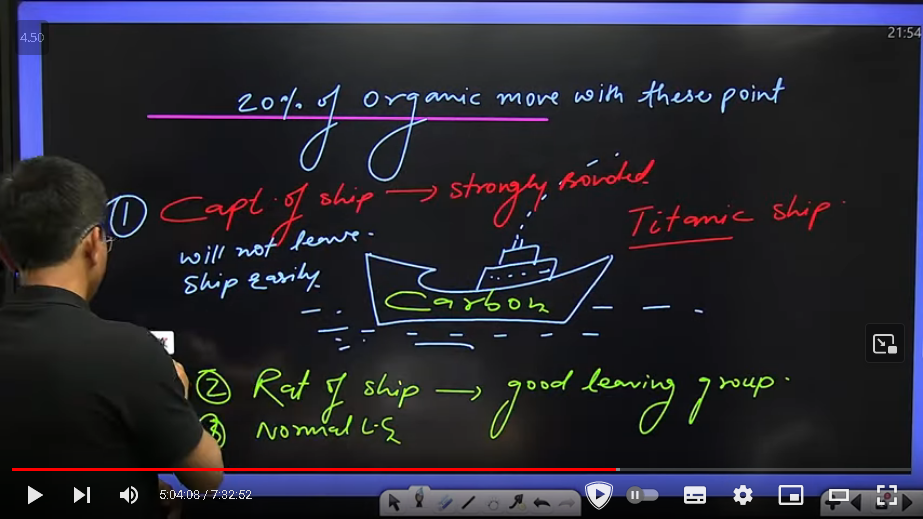 4.50
21:54
20% of organic move with these point
① Capt. of ship → strongly Bonded.
Titanic ship.
will not leave.
ship easily.
Carbon
② Rat of ship → good leaving group.
③ Normal L.G
5:04:08 / 7:32:52